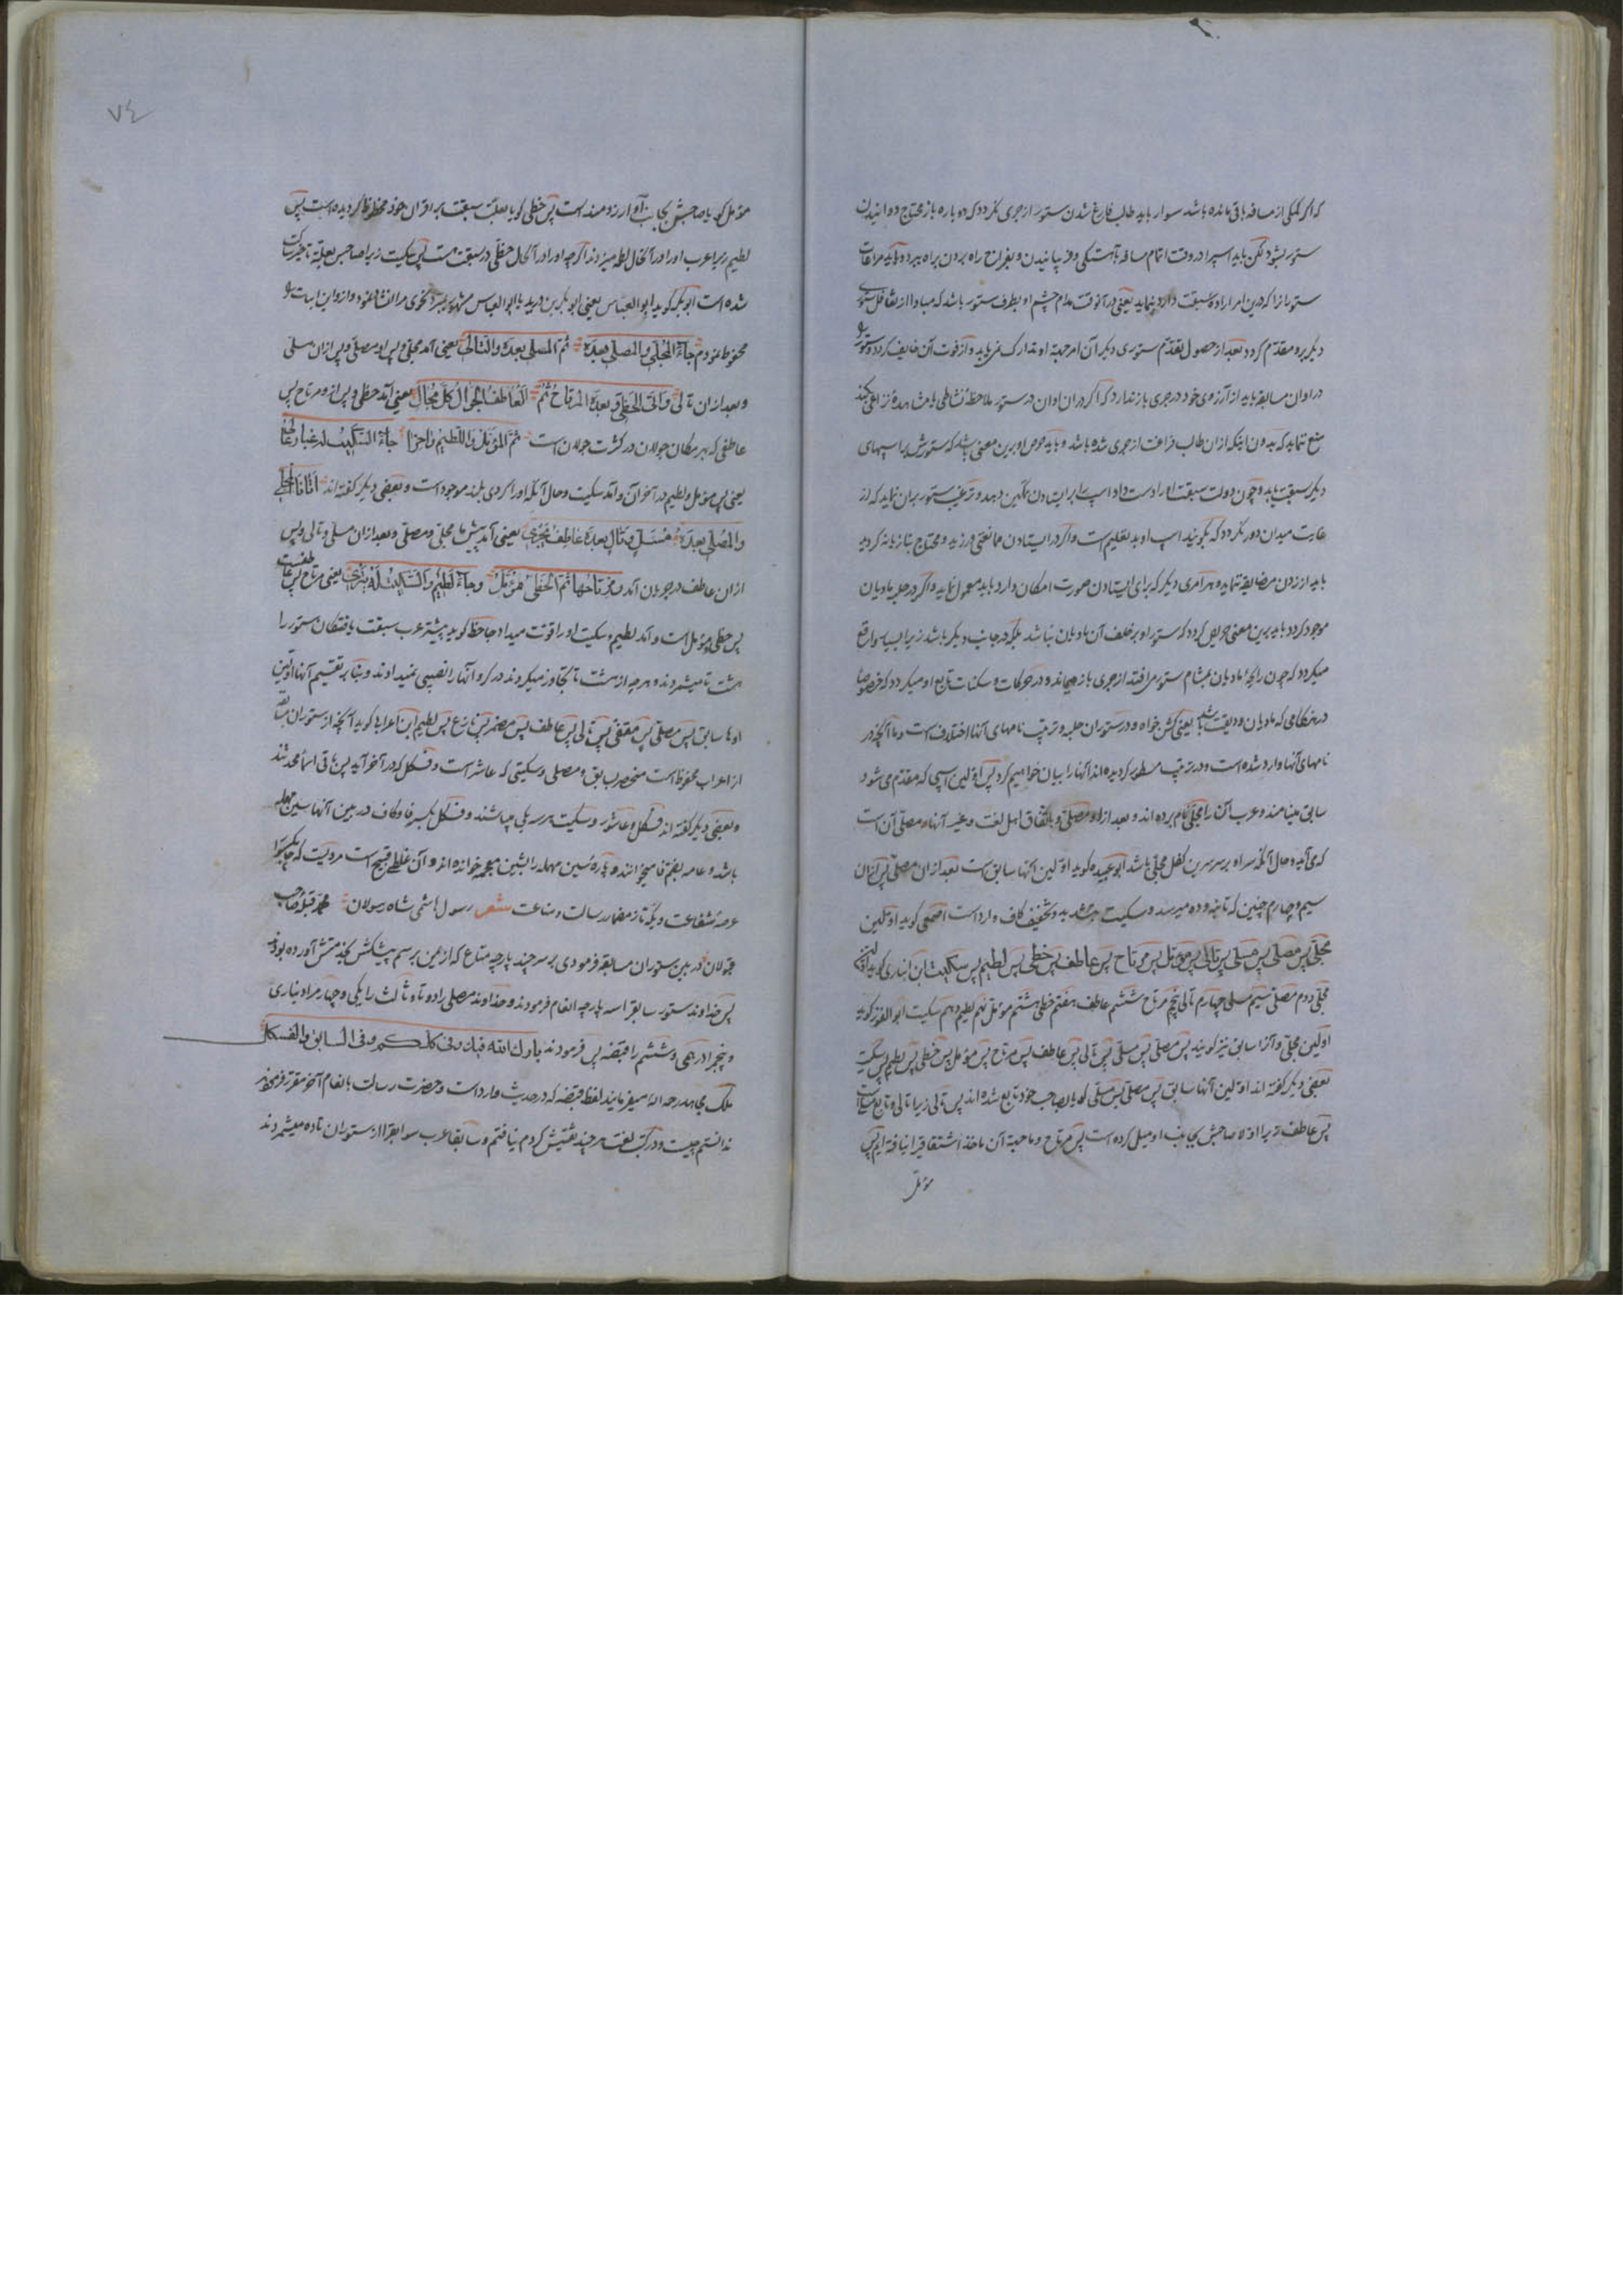 که اگر کمکی از مسافه باقی مانده باشد سوار باید طالب فارغ شدن ستور از جری نکردد که دوباره باز محتاج دوانیدن
ستور بشود لکن باید اسپرا در وقت اتمام مسافه باهستکی و بفراخ راه بردن براه ببرد و باید مراعات
ستورانرا که درین امر اراده سبقت دارد نماید یعنی در آنوقت مدام چشم او بطرف ستور باشد که مبادا از تغافل ستوری
دیکر برو مقدم کردد بعد از حصول تقدم ستوری دیکر آن امر حیة او تدارک نمی یابد و از فوت آن خایف کردد و ستور
در اوان مسابقه باید از آرزوی خود در جری باز ندارد که اکر در آن اوان در ستور ملاحظه نشاطی یا مشاهده
منع ننماید که بدون اینکه ازان طالب فراغت از جری شده باشد و باید حرص او برین معنی باشد که ستورش با اسپهای
دیکر سبقت یابد و چون دولت سبقت اورا دست داد اسپ را بر ایستادن تمکین دهد و ترغیب ستور بران نماید که از
غایت میدان دور نکردد که بکویند اسپ او بد تعلیم است و اکر در ایستادن ممانعتی ورزید و محتاج بتازیانه کردید
باید از زدن مضایقه ننماید و هر امری دیکر که برای ایستادن صورت امکان دارد باید معمول نماید و اکر در حلبه مادیان
موجود کردد باید برین معنی حریص کردد که ستور او بر خلف آن مادیان نباشد بلکه در جانب دیکر باشد زیرا بسیار واقع
میکردد که چون رایحه مادیان بمشام ستور می افتد از جری باز میماند و در حرکات و سکنات تابع او میکردد که خصوصا
در هنکامی که مادیان ودیقت باشد یعنی کشن خواه و در ستوران حلبه و ترتیب نامهای آنها اختلاف است و ما آنچه در
نامهای آنها وارد شده است و در ترتیب مسطور کردیده اند آنها را بیان خواهیم کرد پس اولین اسپی که مقدم می شود
سابق مینامند و عرب آن را مجلی نام برده اند و بعد از او مصلی و باتفاق اهل لغت و غیر آنها و مصلی آن است
که می آید و حال آنکه سر او بر سرین کفل مجلی باشد ابو عبیده کوید اولین آنها سابق است بعد ازان مصلی پس ازان
سیم و چهارم چنین که تا نه و ده میرسد و سکیت بتشدید و بتخفیف کاف وارد است اصمعی کوید اولین
مجلی پس مصلی پس مسلی پس تالی پس مؤمل پس مرتاح پس عاطف پس حظی پس لطیم پس سکیت ابن انباری کوید اولین
مجلی دوم مصلی سیم مسلی چهارم تالی پنجم مرتاح ششم عاطف هفتم حظی هشتم مؤمل نهم لطیم دهم سکیت ابو الغوث کوید
اولین مجلی و آنرا سابق نیز کویند پس مصلی پس مسلی پس تالی پس عاطف پس مرتاح پس مؤمل پس حظی پس لطیم پس سکیت
بعضی دیکر کفته اند اولین آنها سابق پس مصلی پس مسلی کویا بصاحب خود تابع شده اند پس تالی زیرا تالی و تابع
پس عاطف زیرا اولا صاحبش بجانب او میل کرده است پس مرتاح و ما حیة آن ماخذ اشتقاقیرا نیافته ایم پس
مؤمل
٧٤
مؤمل کویا صاحبش بجانب او آرزومند است پس حظی کویا بعلت سبقت بر اقران خود محظوظ کردیده است پس
لطیم زیرا عرب او را در آنحال لطمه میزدند اکرچه او را در آنحال حظی در سبقت هست پس سکیت زیرا صاحبش بعلة تاخرش ساکت
شده است ابوبکر کوید ابو العباس یعنی ابوبکر بن درید یا ابو العباس مشهور بمبرد نحوی مرا انشا نمود و ازو این ابیات
محفوظ نمودم جاءَ المُجَلّی والمصلی بعده ثم المسلی بعده والتالی یعنی آمد مجلی و پس او مصلی و پس ازان مسلی
و بعد ازان تالی والی الحظی وبعده المرتاح ثم العاطف الجوال کل مجال یعنی آمد حظی و پس ازو مرتاح پس
عاطفی که بهر مکان جولان در کثرت جولان است ثم المؤمل واللطیم جاءَ السکیت له غبار
یعنی پس مؤمل و لطیم در آخر آن و آمد سکیت و حال آنکه او را کردی بلند موجود است و بعضی دیکر کفته اند اتانا المجلی
والمصلی بعده مسل وتال بعده عاطف یجری یعنی آمد پیش ما مجلی و مصلی و بعد ازان مسلی و تالی و پس
ازان عاطف در جریان آمد مرتاحها ثم الحظی مؤمل وجاء لطیم والسکیت له یعنی مرتاح پس عاطفت
پس حظی و مؤمل است و آمد لطیم و سکیت او را قوت میداد جاحظ کوید پیشتر عرب سبقت یافتکان ستور را
هشت تا میشمردند و هرچه از هشت تا تجاوز میکردند در کرو آنها را نصیبی نمیدادند و بنابر تقسیم آنها اولین
اوها سابق پس مصلی پس مقفی پس تالی پس عاطف پس مضمر پس بارع پس لطیم ابن اعرابی کوید آنچه از ستوران سابقه
از اعراب محفوظ است منحصر بسابق و مصلی و سکیتی که عاشر است و فسکل که در آخر آید پس باقی اسماء محدثند
و بعضی دیکر کفته اند فسکل و عاشور و سکیت هر سه یکی میباشند و فسکل بکسر فا و کاف در بین آنها سین مهمله
باشد و عامه بضم فا میخوانند و پاره سین مهمله را بشین معجمه خوانده اند و آن غلطی قبیح است مرویست که
عرصه شفاعت و یکه تاز مضمار رسالت و مناعت شعر رسول هاشمی شاه رسولان محمد قبله صاحب
قبولان در بین ستوران مسابقه فرمودی بر سر چند پارچه متاع که از یمن برسم پیشکش بخدمتش آورده بودند
پس خداوند ستور سابقرا سه پارچه انعام فرمودند و خداوند مصلی را دو تا و ثالث را یکی و چهارم را دیناری
و پنجم را درهمی و ششم را قبضه پس فرمودند بارك الله فیك وفی کلکم وفی السابق والفسکل
ملک مجاهد رحمه الله میفرمایند لفظ قبضه که در حدیث وارد است و حضرت رسالت بانعام آخر مقرر فرمودند
ندانستم چیست و در کتب لغت هر چند تفتیش کردم نیافتم و سابقا عرب سوابقرا از ستوران تا ده میشمردند